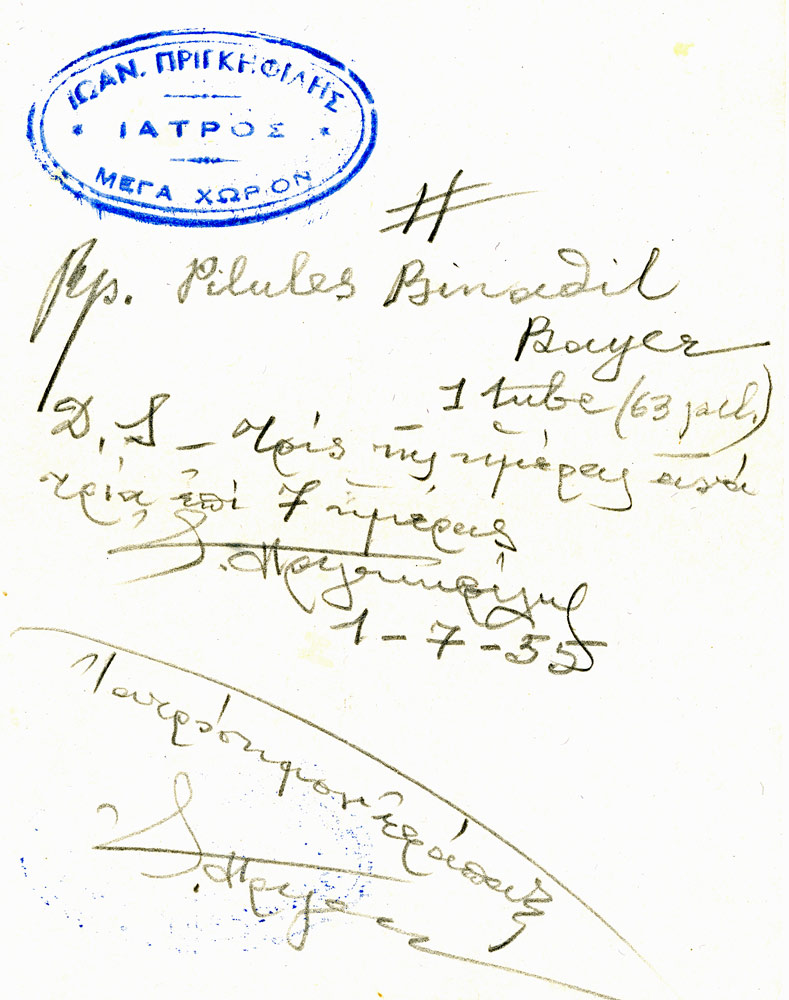 ΙΩΑΝ. ΠΡΙΓΚΗΦΙΛΗΣ
* ΙΑΤΡΟΣ *
ΜΕΓΑ ΧΩΡΙΟΝ
#
Rp. Pilules Binadil
Bayer
1 tube (63 pil.)
D. S – τρὶς τῆς ἡμέρας ἀνά
τρία ἐπὶ 7 ἡμέρας
Ἰ. Πριγκηφίλης
1 – 7 – 55
ἐφάπαξ